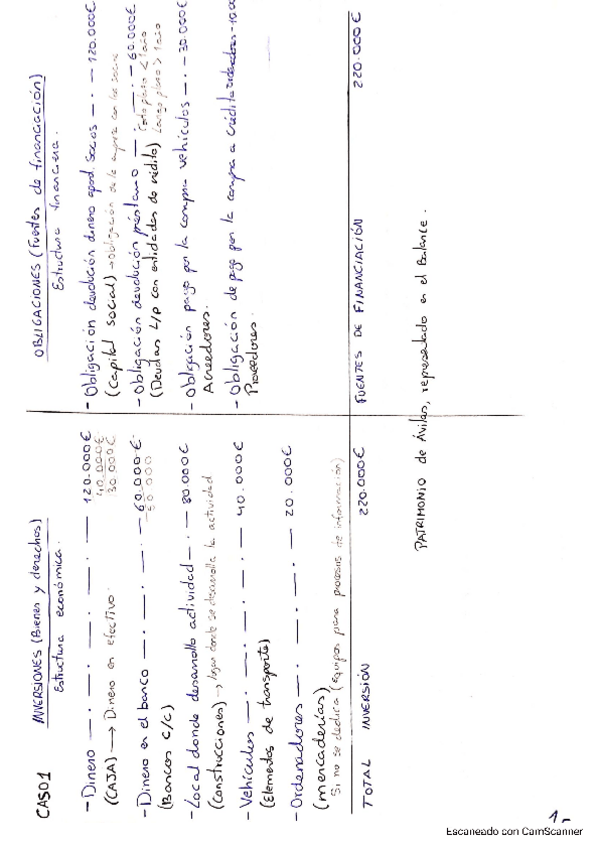 CASO 1
INVERSIONES (Bienes y derechos)
Estructura económica.
- Dinero —.—.—.—.— 120.000€
(CAJA) → Dinero en efectivo.
40.000€
30.000€
- Dinero en el banco —.—.—.— 60.000€
(Bancos c/c)
50.000
- Local donde desarrolla actividad —.— 80.000€
(Construcciones) → lugar donde se desarrolla la actividad
- Vehículos —.—.—.— 40.000€
(Elementos de transporte)
- Ordenadores —.—.—.— 20.000€
(mercaderías)
Si no se dedica (equipos para procesos de información)
TOTAL INVERSIÓN 220.000€
OBLIGACIONES (Fuentes de financiación)
Estructura financiera.
- Obligación devolución dinero aport. socios —.— 120.000€
(Capital social) → obligación de la empresa con los socios
- Obligación devolución préstamo —.—.— 60.000€
(Deudas L/p con entidades de crédito)
Corto plazo < 1 año
Largo plazo > 1 año
- Obligación pago por la compra vehículos —.— 30.000€
Acreedores.
- Obligación de pago por la compra a crédito
Proveedores.
FUENTES DE FINANCIACIÓN 220.000€
PATRIMONIO de Ávilas, representado en el Balance.
1.-
Escaneado con CamScanner